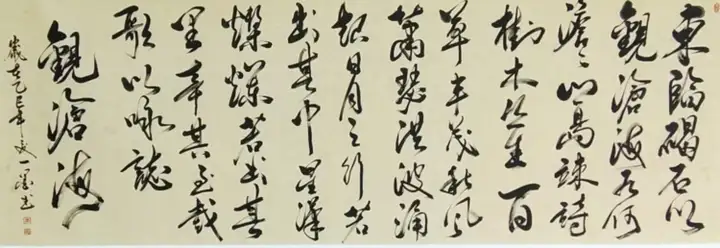 東臨碣石以
觀滄海水何
澹〻山島竦峙
樹木丛生百
草丰茂秋風
蕭瑟洪波涌
起日月之行若
出其中星漢
燦爛若出其
里幸甚至哉
歌以咏誌
觀滄海
歲在乙巳年夏一書